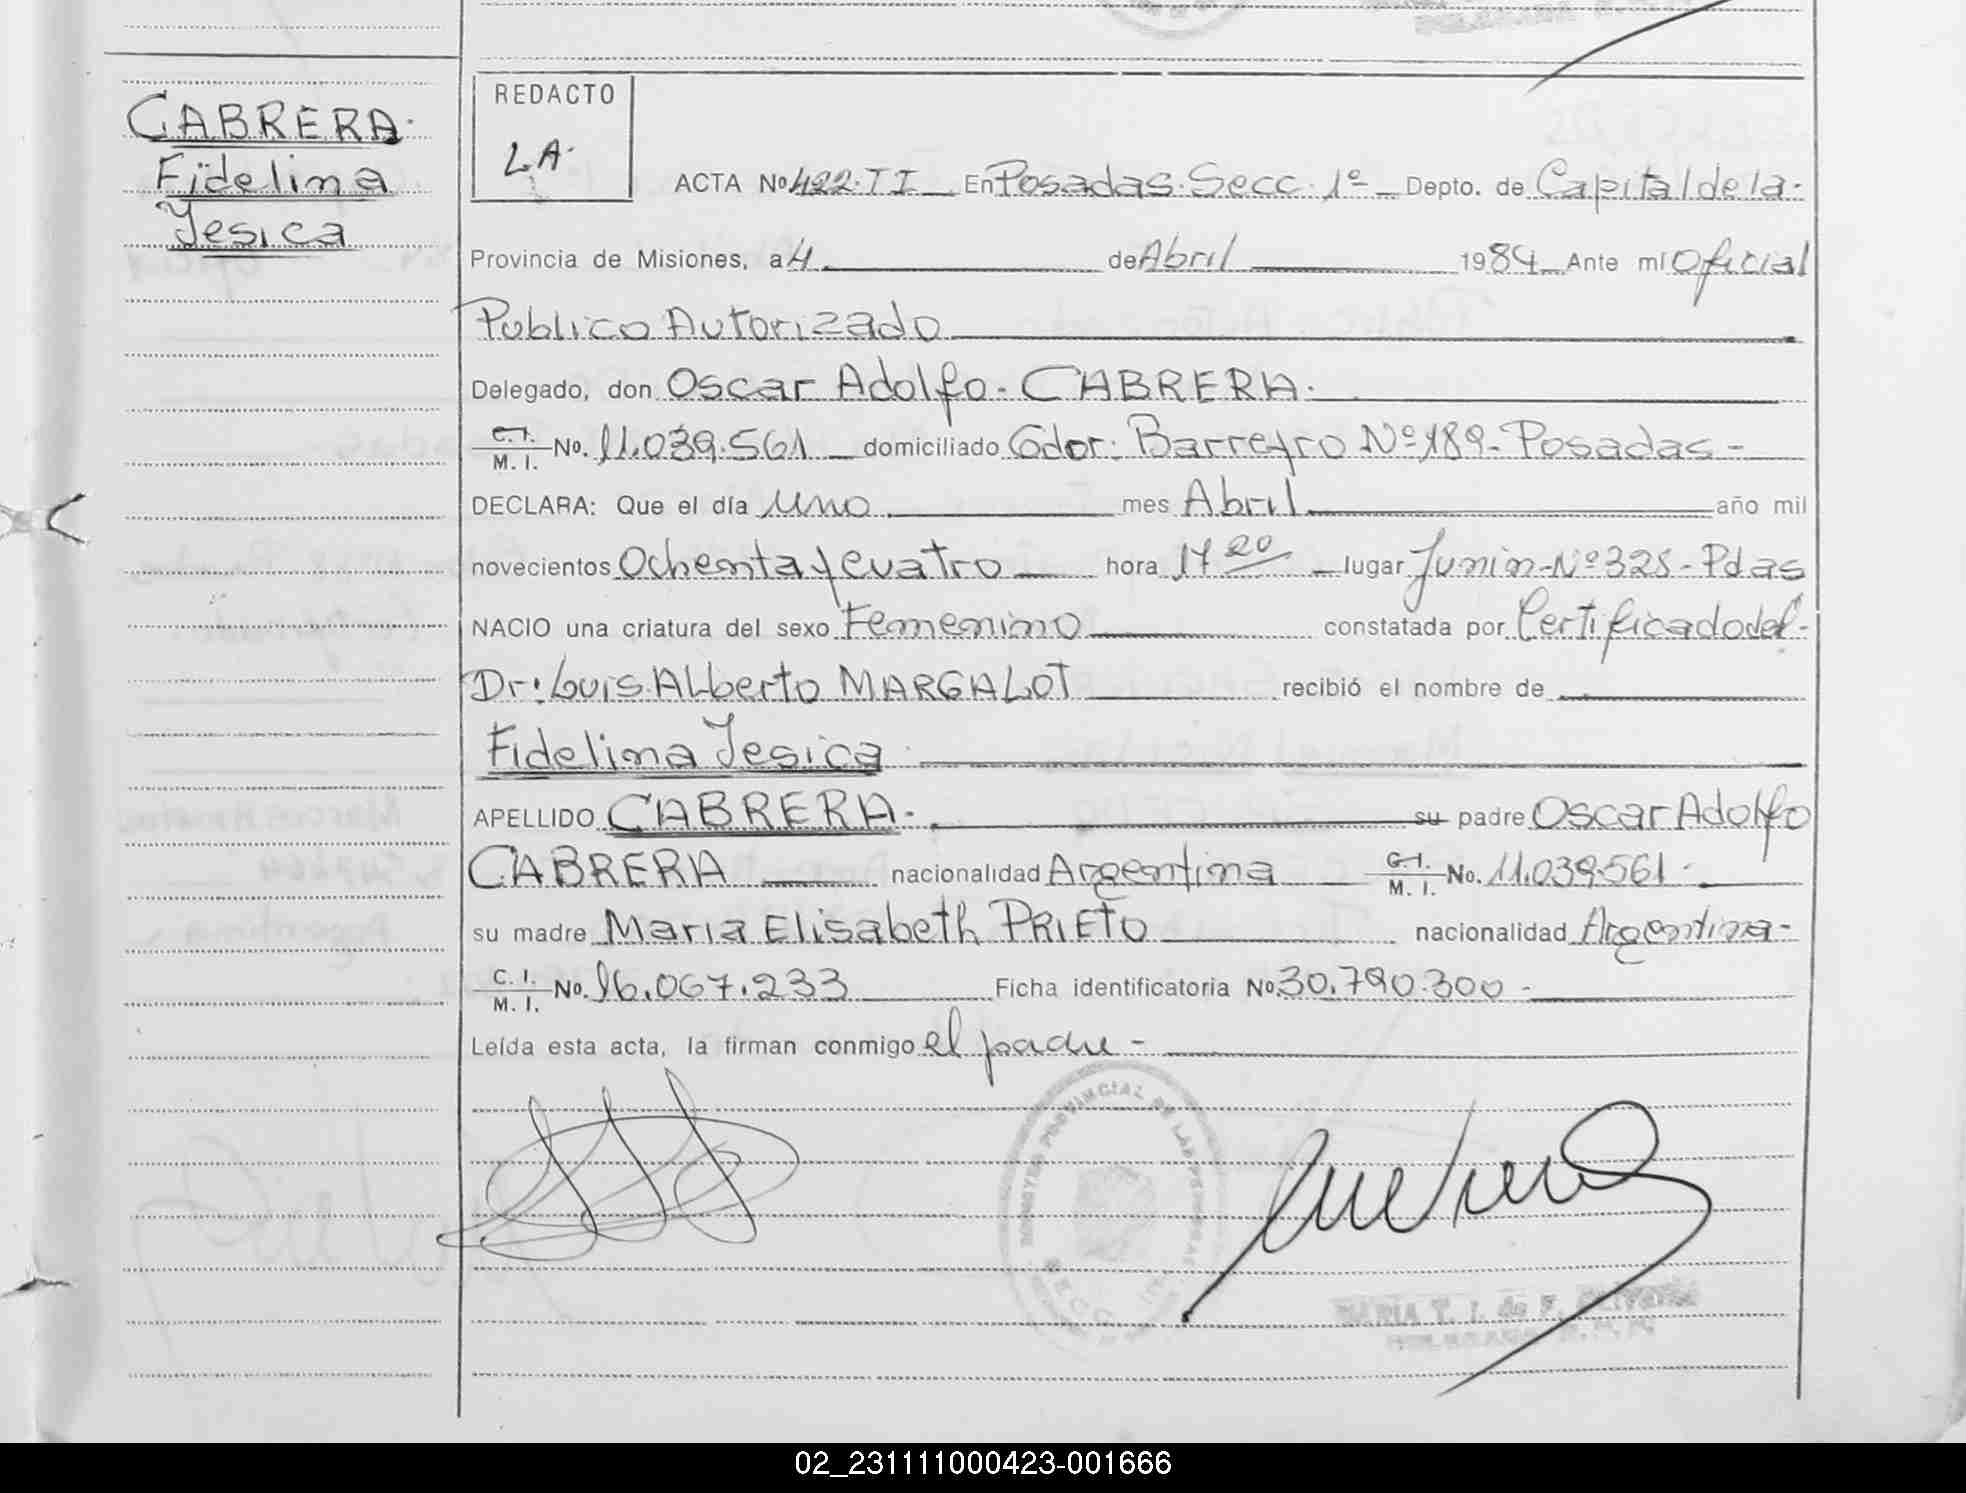 CABRERA.
Fidelina
Jesica
REDACTO
L.A.
ACTA No 422.TI En Posadas. Secc. 1º Depto. de Capital de la.
Provincia de Misiones, a 4 de Abril 1984 Ante mí Oficial
Publico Autorizado
Delegado, don Oscar Adolfo. CABRERA.
C.I. M.I. No. 11.039.561 domiciliado Gdor: Barreyro Nº 189- Posadas -
DECLARA: Que el día uno mes Abril año mil
novecientos Ochenta y cuatro hora 17 20 lugar Junin-Nº 325- Pdas
NACIO una criatura del sexo Femenino constatada por Certificado del-
Dr: Luis Alberto MARGALOT recibió el nombre de
Fidelina Jesica
APELLIDO CABRERA. su padre Oscar Adolfo
CABRERA nacionalidad Argentina C.I. M.I. No. 11.039.561 -
su madre Maria Elisabeth PRIETO nacionalidad Argentina-
C.I. M.I. No. 16.067.233 Ficha identificatoria No. 30.790.300 -
Leída esta acta, la firman conmigo el padre -
PROVINCIAL DE LAS PERSONAS
SECC.
MARIA T. I. de F.
02_231111000423-001666